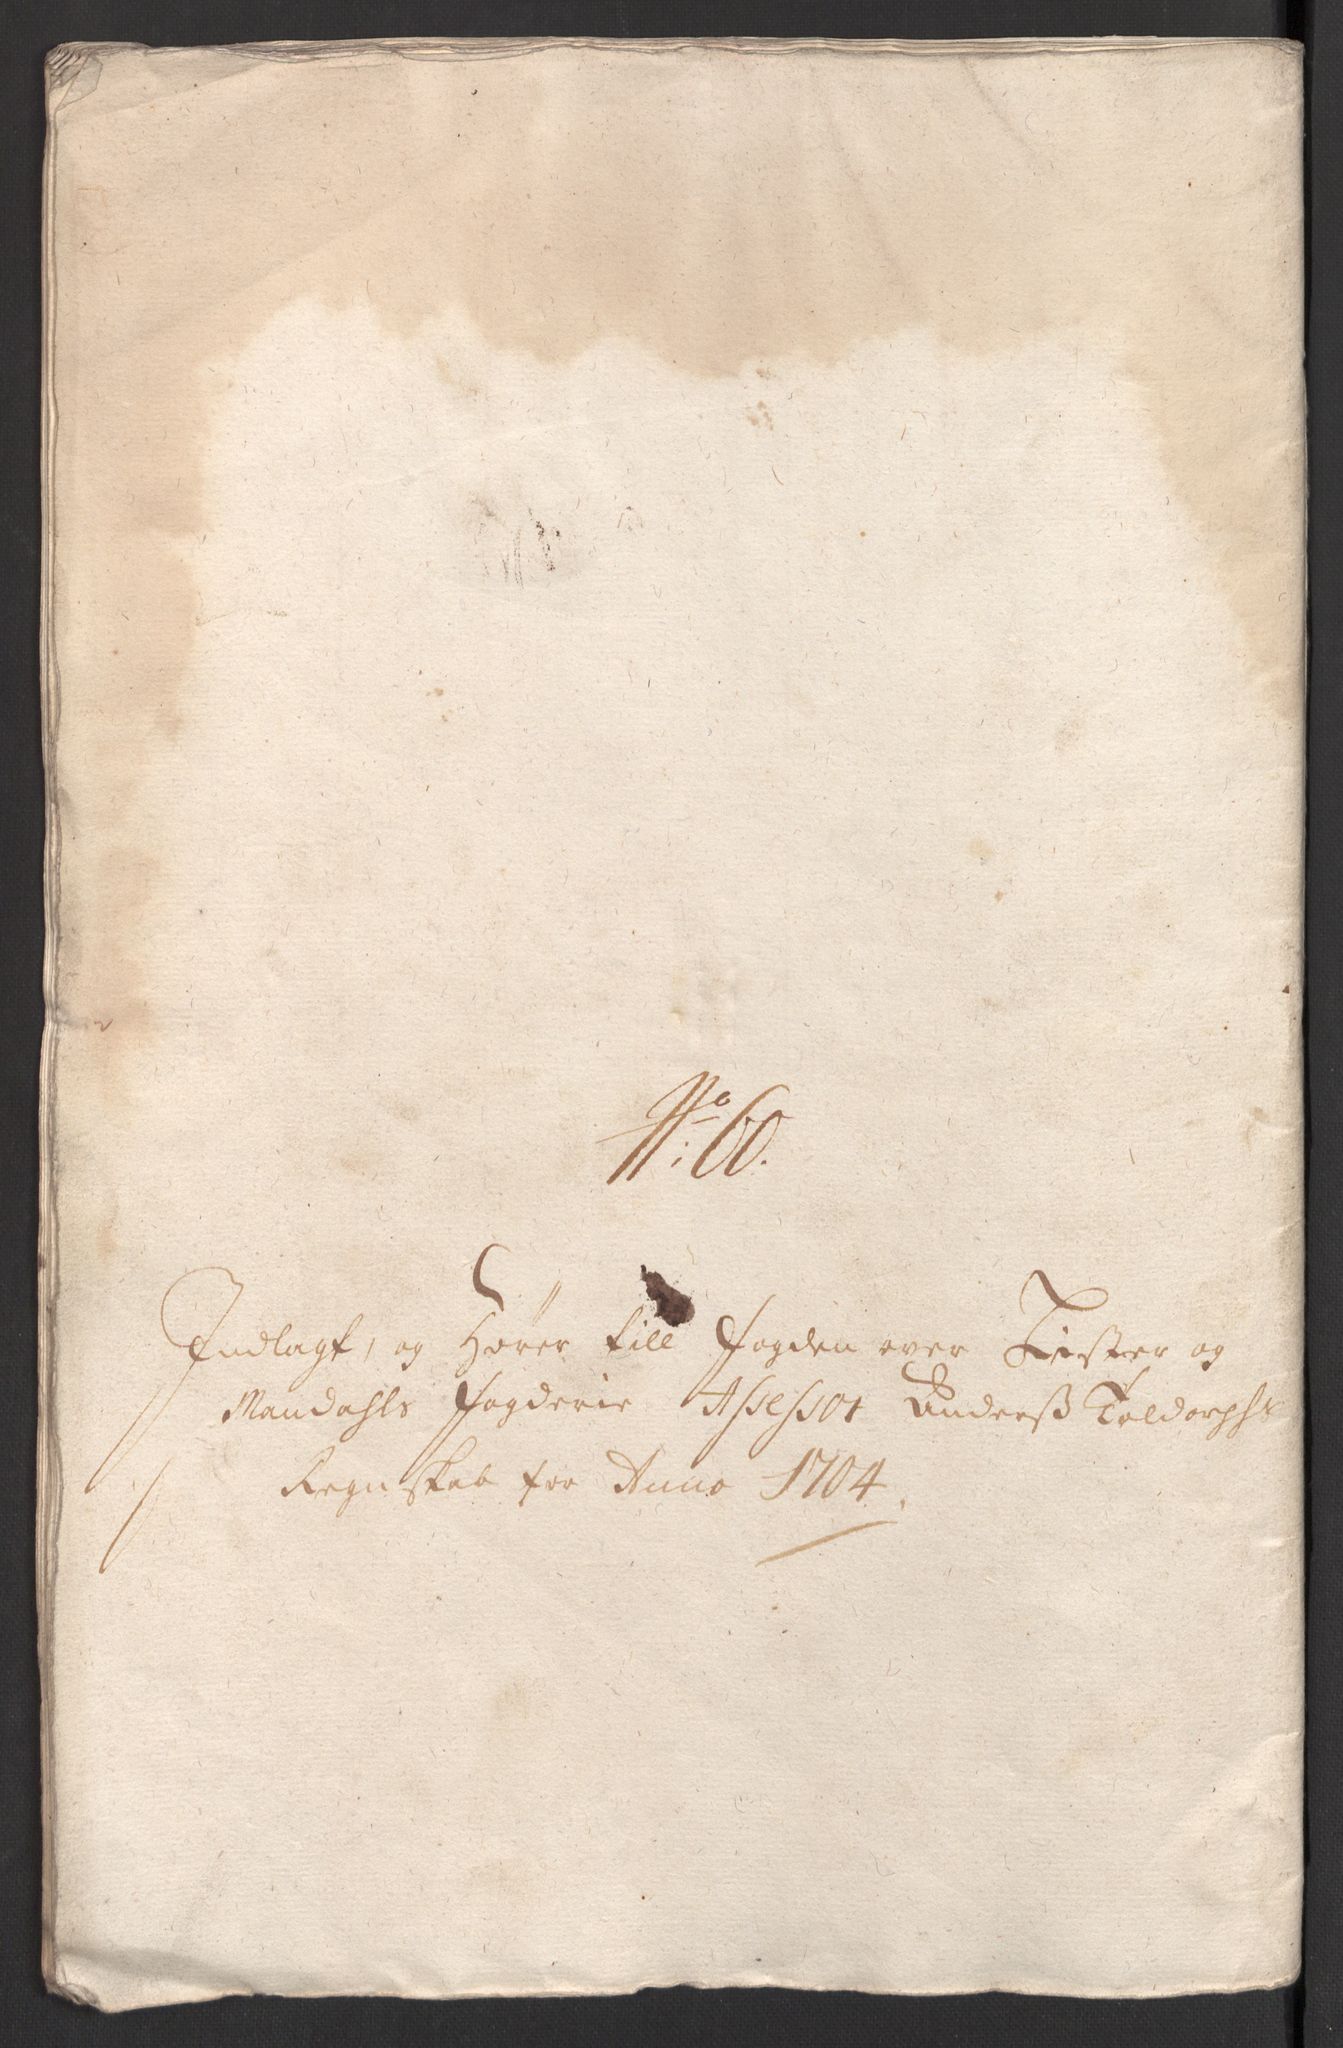 No: 60.
Indlagt, og Hører till Fogden over Lister og
Mandahls Fogderie Assessor Anderss Toldorphs
Regnskab for Anno 1704.